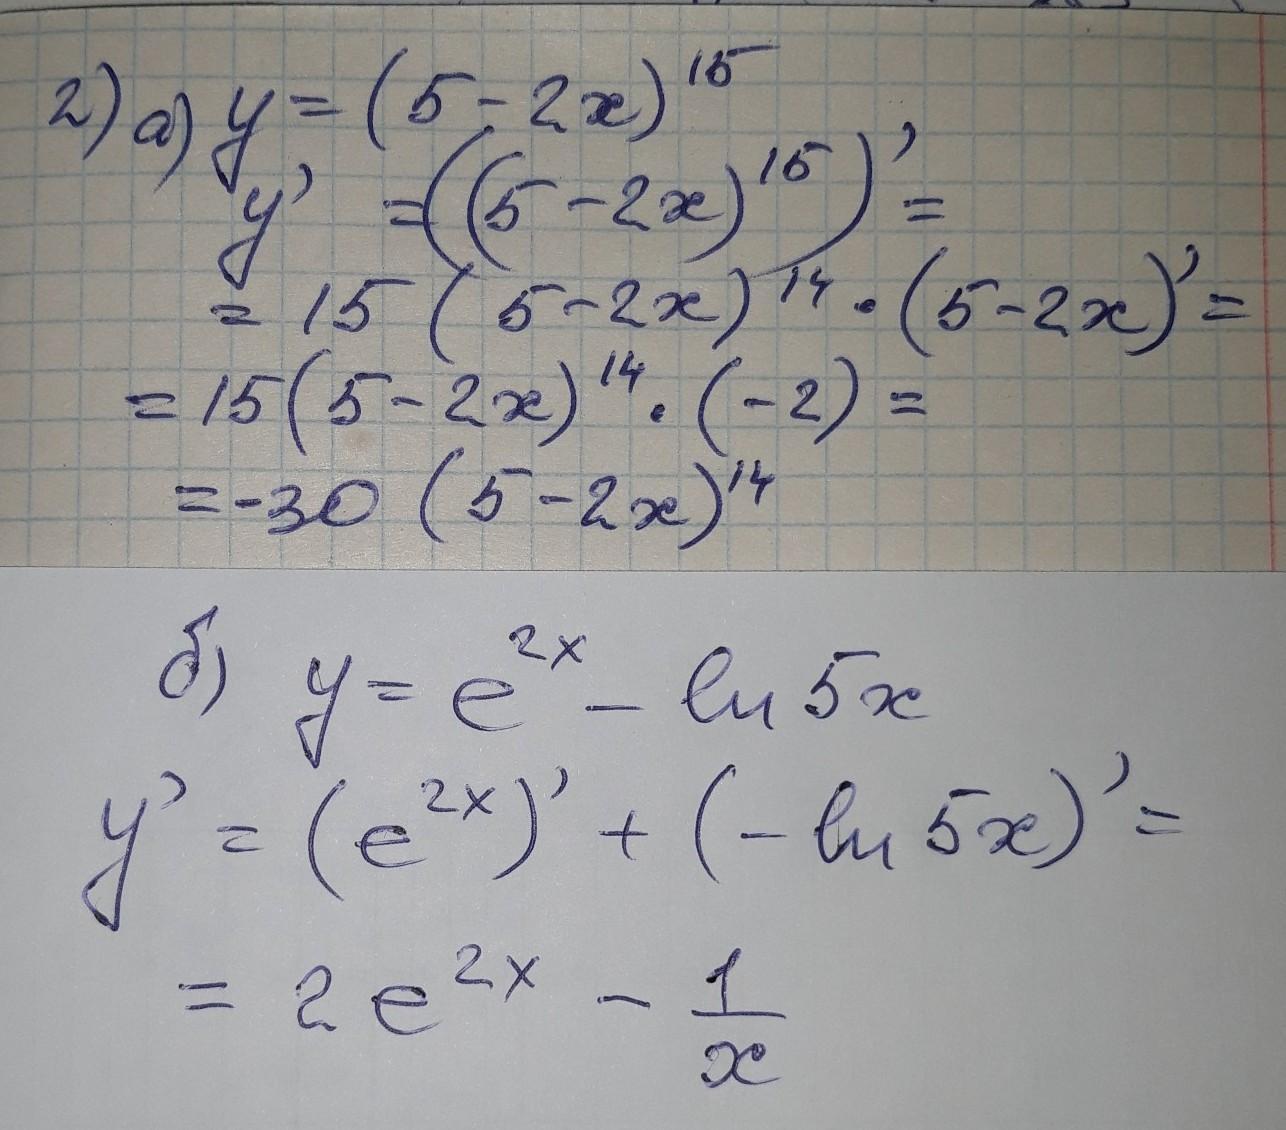 2) а) y = (5 - 2x)^15
y' = ((5 - 2x)^15)' =
= 15 (5 - 2x)^14 · (5 - 2x)' =
= 15 (5 - 2x)^14 · (-2) =
= -30 (5 - 2x)^14
б) y = e^2x - ln 5x
y' = (e^2x)' + (- ln 5x)' =
= 2 e^2x - 1/x